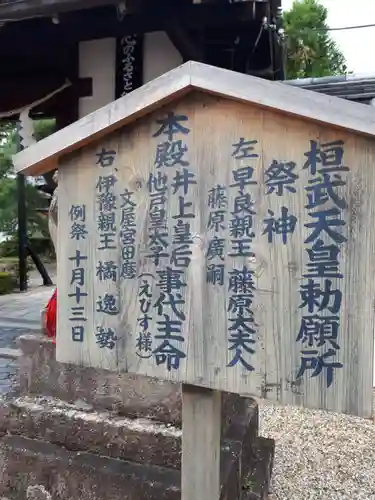 桓武天皇勅願所
祭神
左、早良親王 藤原大夫人
藤原廣嗣
本殿 井上皇后 事代主命
他戸皇太子(えびす様)
文屋宮田麿
右、伊豫親王 橘逸勢
例祭 十月十三日
心のふるさと